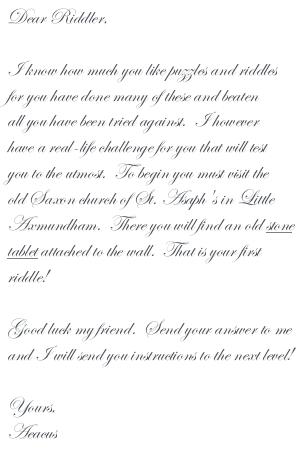 Dear Riddler,
I know how much you like puzzles and riddles
for you have done many of these and beaten
all you have been tried against. I however
have a real-life challenge for you that will test
you to the utmost. To begin you must visit the
old Saxon church of St. Asaph's in Little
Axmundham. There you will find an old stone
tablet attached to the wall. That is your first
riddle!
Good luck my friend. Send your answer to me
and I will send you instructions to the next level!
Yours,
Aeacus